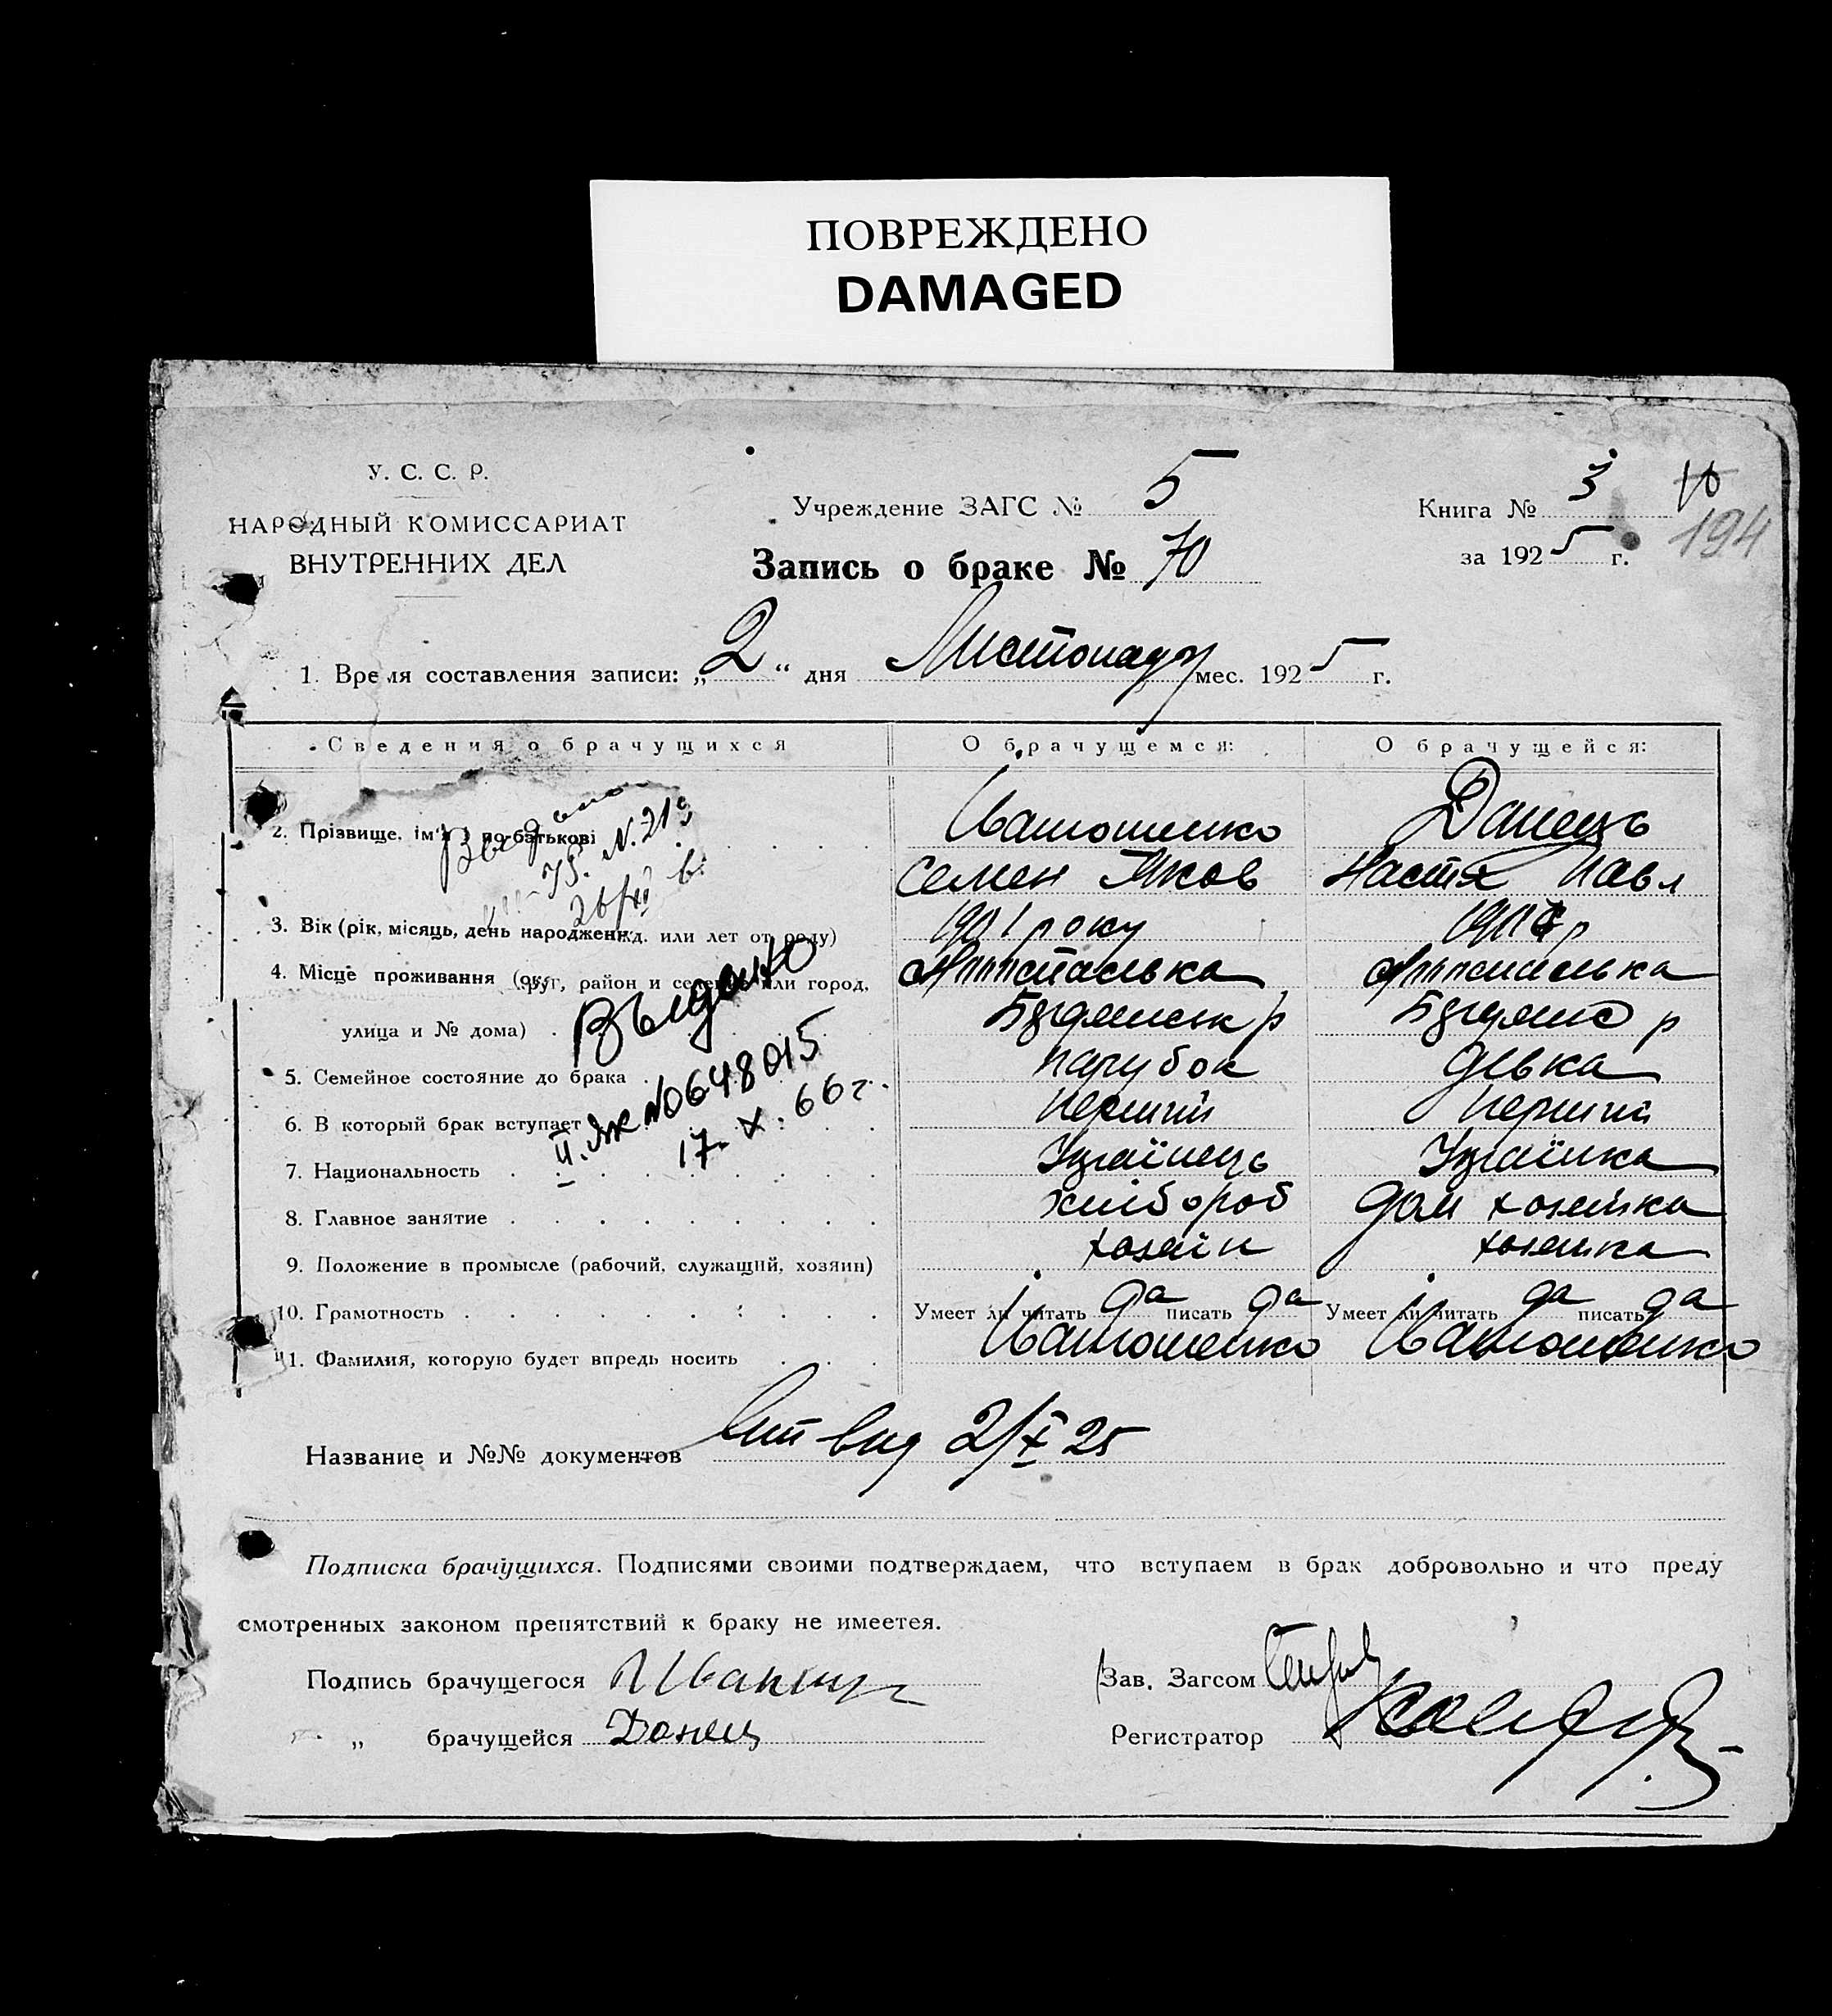 ПОВРЕЖДЕНО
DAMAGED
У. С. С. Р.
НАРОДНЫЙ КОМИССАРИАТ
ВНУТРЕННИХ ДЕЛ
Учреждение ЗАГС № 5
Запись о браке № 70
Книга № 3
10
194
за 1925 г.
1. Время составления записи: „2“ дня Листопаду мес. 1925 г.
Сведения о брачущихся О брачущемся: О брачущейся:
2. Прізвище, ім'я і по-батькові Іванюшенко Данець
Семен Яков Настя Павл
3. Вік (рік, місяць, день народженн. д. или лет от роду) 1901 року
4. Місце проживання (округ, район и селение или город,
улица и № дома) р р
5. Семейное состояние до брака парубок девка
6. В который брак вступает перший перший
7. Национальность Українець Українка
8. Главное занятие хлібороб дом хозяйка
9. Положение в промысле (рабочий, служащий, хозяин) хозяїн хозяйка
10. Грамотность Умеет ли читать да писать да Умеет ли читать да писать да
11. Фамилия, которую будет впредь носить Іванюшенко Іванюшенко
Выдано
N. 219
26/XI в.
Выдано
II. ЯЖ №0648015
17. X. 66 г.
Название и №№ документов вид 2/X 25
Подписка брачущихся. Подписями своими подтверждаем, что вступаем в брак добровольно и что преду
смотренных законом препятствий к браку не имеется.
Подпись брачущегося
Зав. Загсом
„ брачущейся Донец
Регистратор